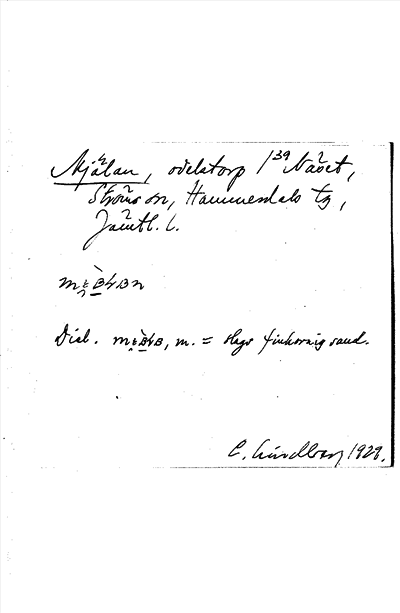 Mjälan, odelstorp 1³⁹ Näset,
Ströms sn, Hammerdals tg,
Jämtl. l.
Dial. m. = slags finkornig sand.
C. Lindberg 1928.